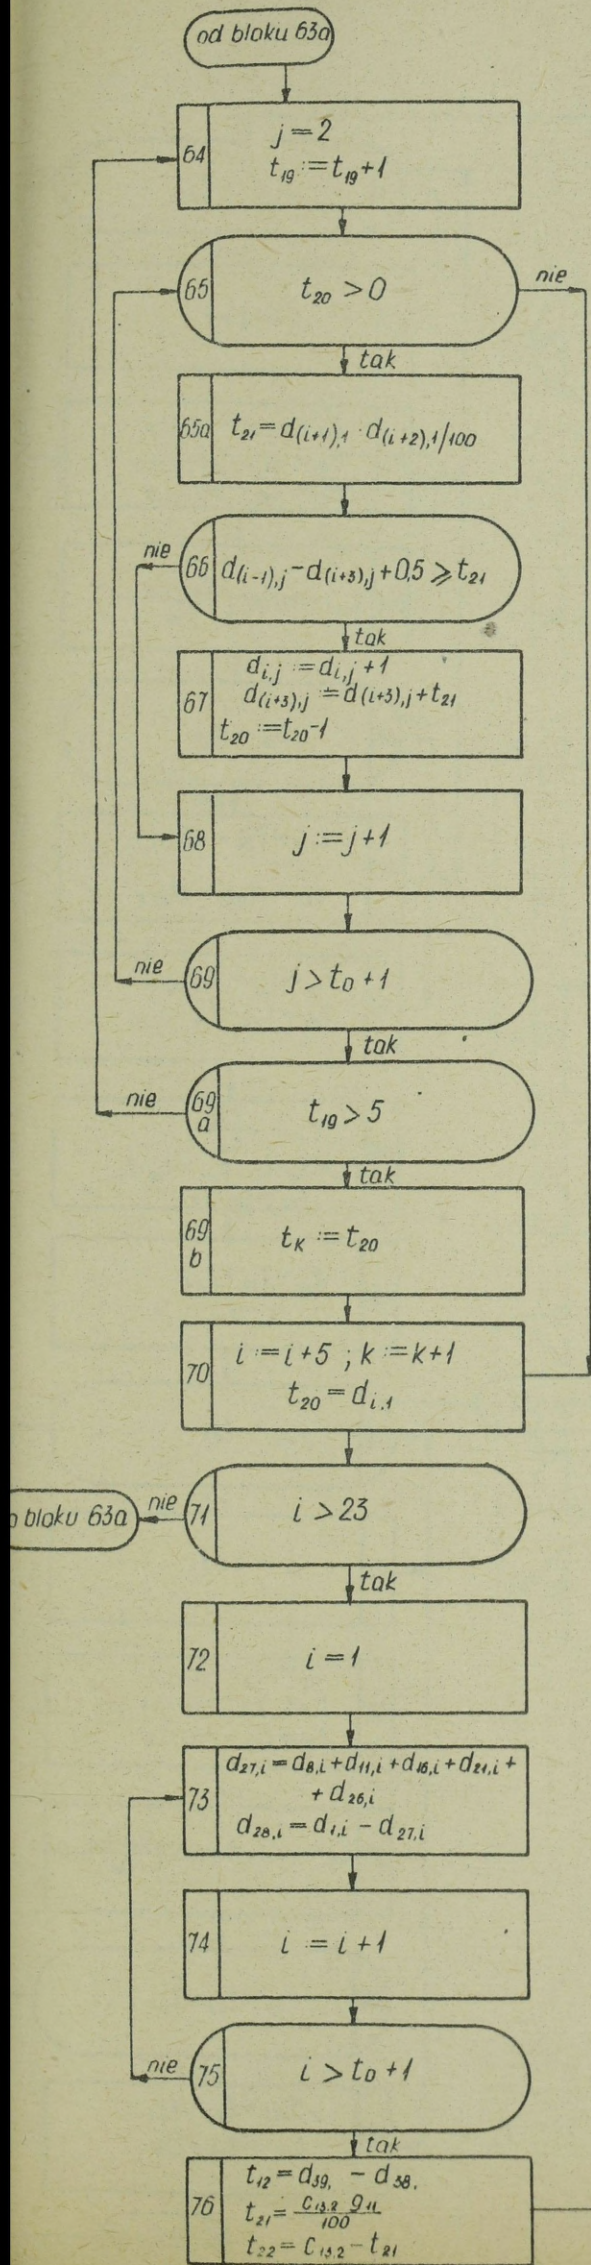 od bloku 63a
64
j = 2
t₁₉ := t₁₉ + 1
65
t₂₀ > 0
nie
tak
65a
t₂₁ = d₍ᵢ₊₁₎,₁ · d₍ᵢ₊₂₎,₁/100
nie
66
d₍ᵢ₋₁₎,ⱼ − d₍ᵢ₊₃₎,ⱼ + 0,5 ⩾ t₂₁
tak
67
dᵢ,ⱼ := dᵢ,ⱼ + 1
d₍ᵢ₊₃₎,ⱼ := d₍ᵢ₊₃₎,ⱼ + t₂₁
t₂₀ := t₂₀ - 1
68
j := j + 1
nie
69
j > t₀ + 1
tak
nie
69
a
t₁₉ > 5
tak
69
b
tₖ := t₂₀
70
i := i + 5 ; k := k + 1
t₂₀ = dᵢ.₁
bloku 63a
nie
71
i > 23
tak
72
i = 1
73
d₂₇,ᵢ = d₈,ᵢ + d₁₁,ᵢ + d₁₆,ᵢ + d₂₁,ᵢ +
+ d₂₆,ᵢ
d₂₈,ᵢ = d₁,ᵢ − d₂₇,ᵢ
74
i := i + 1
nie
75
i > t₀ + 1
tak
76
t₁₂ = d₃₉, − d₃₈.
t₂₁ = c₁₃.₂ g₁₁
100
t₂₂ = c₁₃.₂ − t₂₁